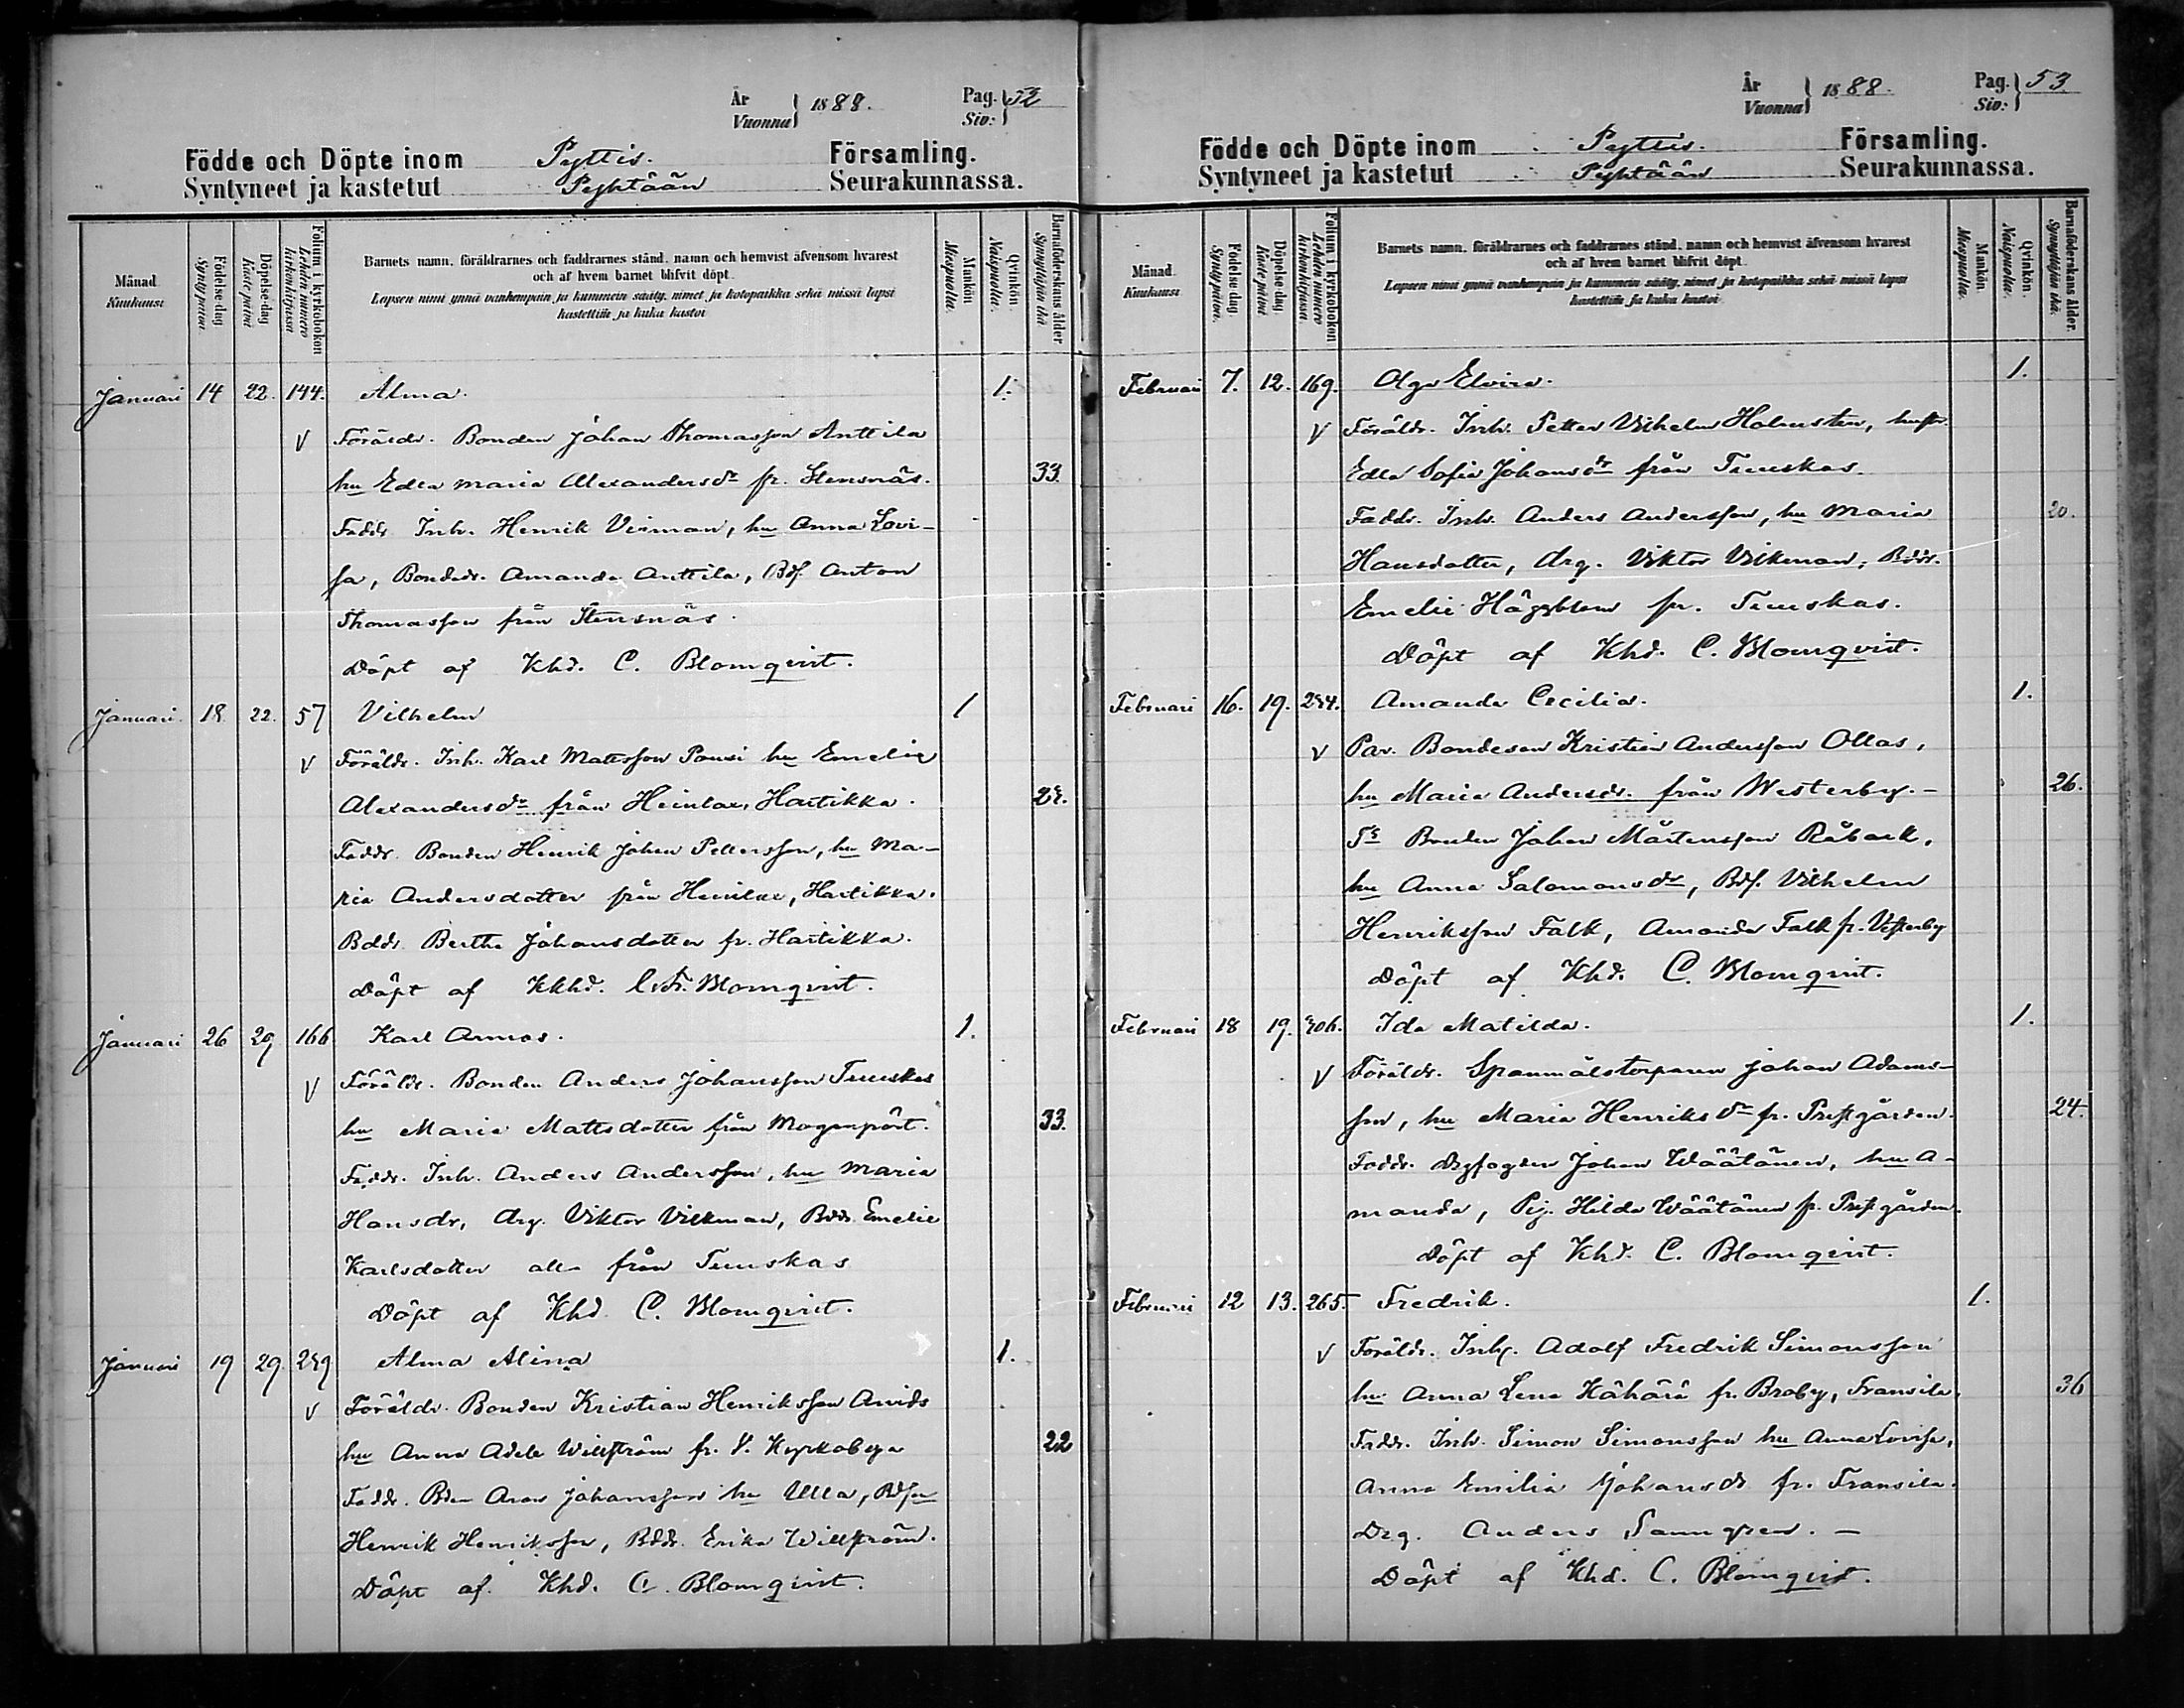 År
Vuonna } 1888.
Pag.
Siv: } 52
Födde och Döpte inom Pyttis. Församling.
Syntyneet ja kastetut Pyhtään Seurakunnassa.
Månad
Kuukausi
Födelse-dag
Synty päivä.
Döpelse-dag
Kaste päivä
Folium i kyrkoboken
Lehden numero
kirkonkirjassa
Barnets namn, föräldrarnes och faddrarnes stånd, namn och hemvist äfvensom hvarest
och af hvem barnet blifvit döpt.
Lapsen nimi ynnä vanhempain ja kummein sääty, nimet ja kotopaikka sekä missä lapsi
kastettiin ja kuka kastoi
Mankön
Miespuolia.
Qvinkön.
Naispuolia.
Barnaföderskans ålder
Synnyttäjän ikä.
Januari 14 22. 144. Alma. 1.
V Föräldr. Bonden Johan Thomasson Anttila
hu Edla Maria Alexandersdr fr. Stensnäs. 33.
Faddr. Inh. Henrik Virman, hu Anna Lovi-
sa, Bondedr. Amanda Anttila, Bdf. Anton
Thomasson från Stensnäs.
Döpt af Khd. C. Blomqvist.
Januari. 18. 22. 57 Vilhelm 1
V Föräldr. Inh. Karl Mattsson Pousi hu Emelie
Alexandersdr från Heinlax, Hartikka.
Faddr. Bonden Henrik Johan Pettersson, hu Ma-
ria Andersdotter från Heinlax, Hartikka.
Bddr. Bertha Johansdotter fr. Hartikka.
Döpt af Kkhd. C. Fr. Blomqvist.
Januari 26 29 166 Karl Armas. 1.
V Föräldr. Bonden Anders Johansson Tuuskas
hu Maria Mattsdotter från Mogenpört. 33.
Faddr. Inh. Anders Andersson, hu Maria
Hansdr, drg. Viktor Vilkman, Bddr. Emelie
Karlsdotter alla från Tuuskas
Döpt af Khd C. Blomqvist.
Januari 19 29. 249 Alma Alina 1.
V Föräldr. Bonden Kristian Henriksson Arvids
hu Anna Adele Willström fr. V. Kyrkoby 22
Faddr. Bden Aron Johansson hu Ulla, Bdsn
Henrik Henriksson, Bddr. Erika Willström.
Döpt af. Khd. C. Blomqvist.
År
Vuonna } 1888.
Pag.
Siv: } 53
Födde och Döpte inom Pyttis. Församling.
Syntyneet ja kastetut Pyhtään Seurakunnassa.
Månad
Kuukausi
Födelse dag.
Synty päivä.
Döpelse dag
Kaste päivä
Folium i kyrkoboken
Lehden numero
kirkonkirjassa.
Barnets namn, föräldrarnes och faddrarnes stånd, namn och hemvist äfvensom hvarest
och af hvem barnet blifvit döpt.
Lapsen nimi ynnä vanhempain ja kummein sääty, nimet ja kotopaikka sekä missä lapsi
kastettiin ja kuka kastoi
Mankön
Miespuolia.
Qvinkön.
Naispuolia.
Barnaföderskans ålder.
Synnyttäjän ikä.
Februari 7. 12. 169. Olga Elvira. 1.
V Föräldr. Inh. Petter Vilhelm Holmsten, hustr.
Edla Sofia Johansdr från Tuuskas.
Faddr. Inh. Anders Andersson, hu Maria 20.
Hansdotter, drg. Viktor Vilkman, Bddr.
Emelie Häggblom fr. Tuuskas.
Döpt af Khd. C. Blomqvist.
Februari 16. 19. 244. Amanda Cecilia. 1.
V Par. Bondeson Kristian Andersson Ollas,
hu Maria Andersdr. från Westerby. 26.
Ts Bonden Johan Mårtensson Råback,
hu Anna Salomonsdr, Bdf. Vilhelm
Henriksson Falk, Amanda Falk fr. Vesterby
Döpt af Khd. C. Blomqvist.
Februari 18 19. 406. Ida Matilda. 1.
V Föräldr. Spanmålstorparen Johan Adams-
son, hu Maria Henriksdr fr. Prestgården. 24.
Faddr. Drgfogden Johan Wäätänen, hu A-
manda, Pig. Hilda Wäätänen fr. Prestgården.
Döpt af Khd. C. Blomqvist.
Februari 12 13. 265. Fredrik. 1.
V Föräldr. Inhg. Adolf Fredrik Simonsson
hu Anna Lena Kähärä fr. Broby, Fransila, 36
Faddr. Inh. Simon Simonsson hu Anna Lovisa,
Anna Emilia Johansdr fr. Fransila.
Drg. Anders Sanngren. —
Döpt af Khd. C. Blomqvist.